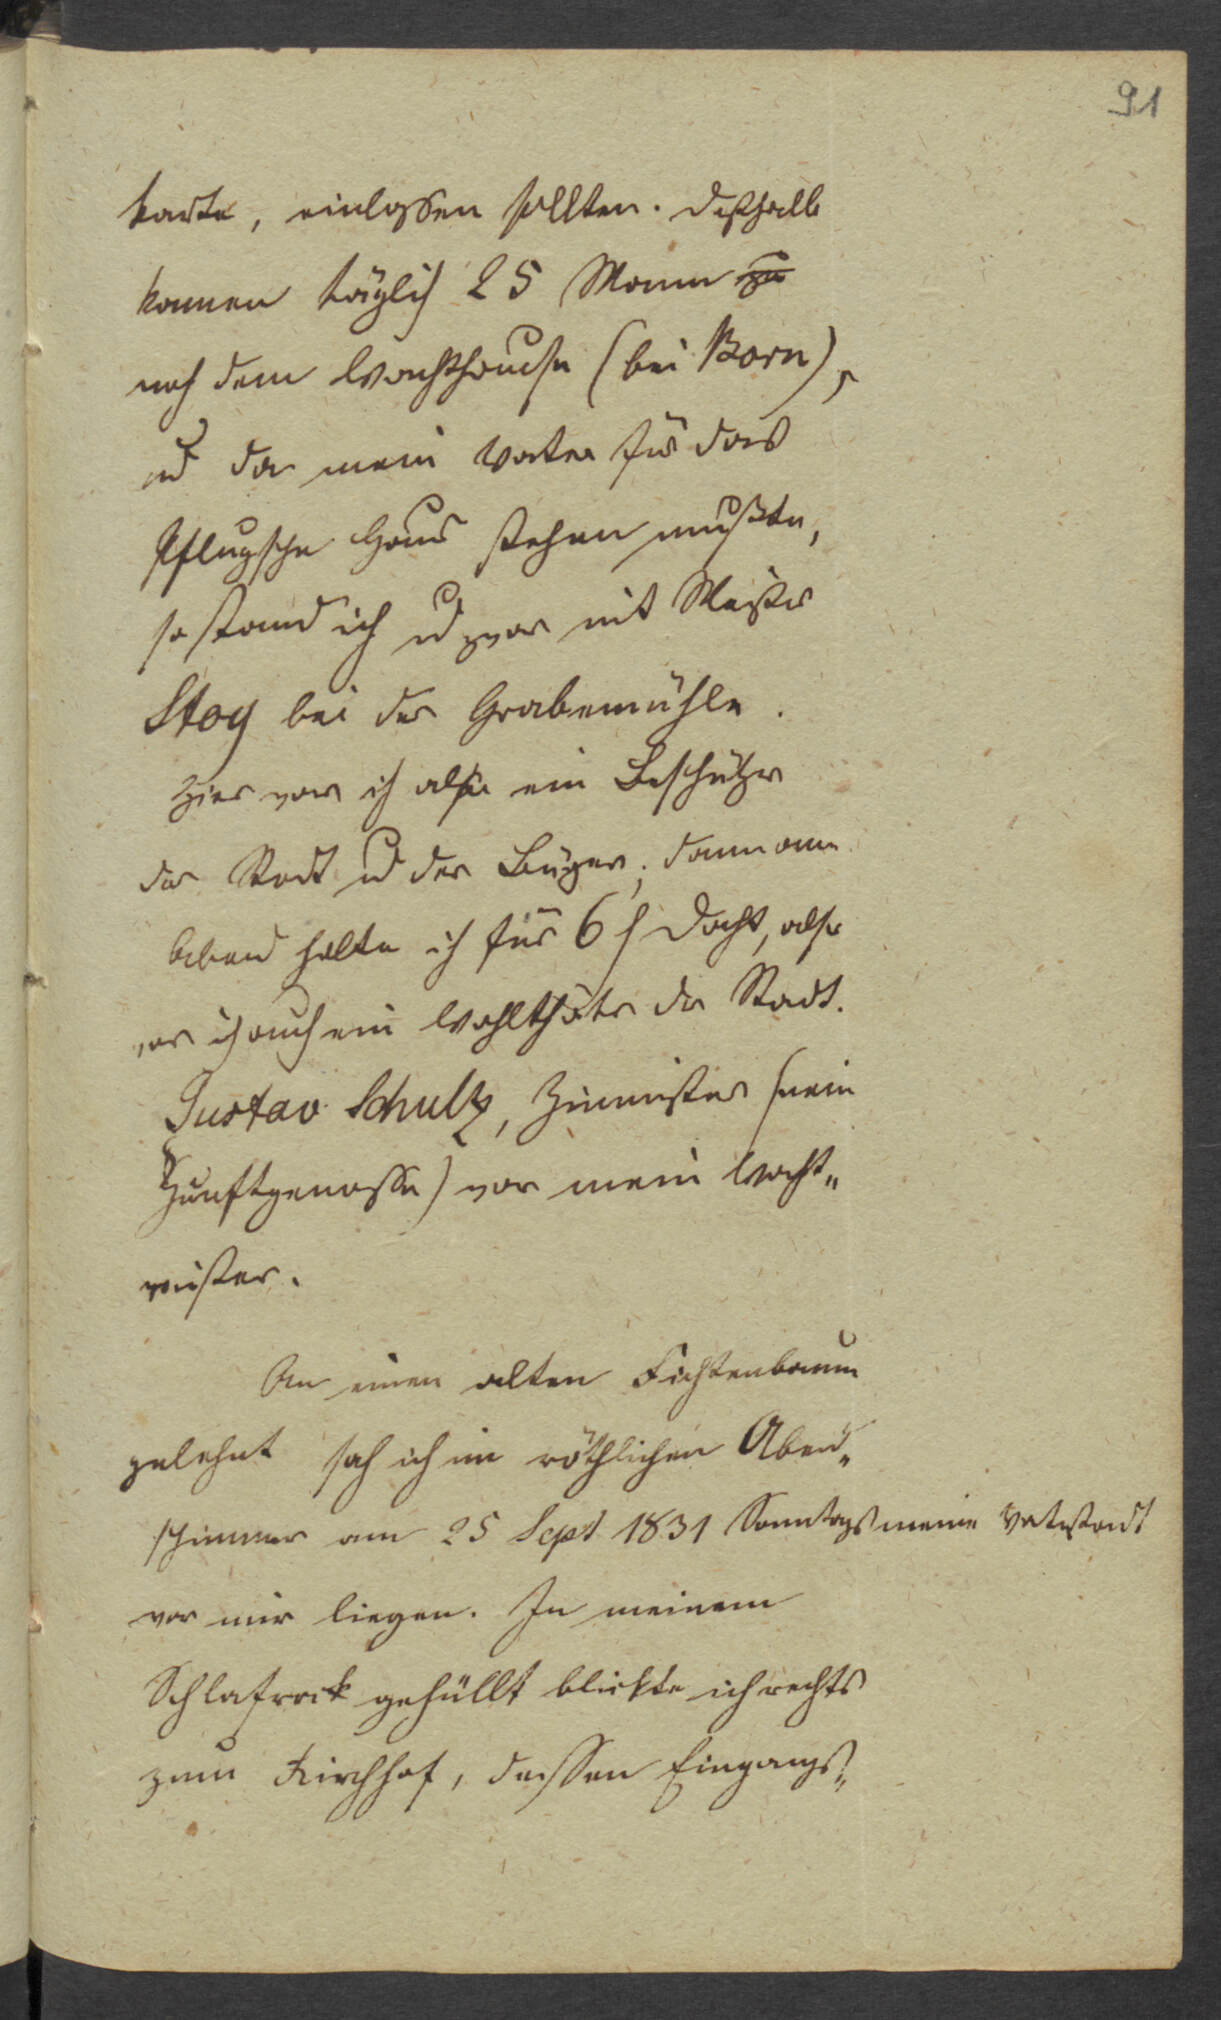 91
karte, einlassen sollten. Deßhalb
kamen täglich 25 Mann zu
nach dem Wachthause (bei Born),
und da mein Vater für das
Pflugsche Haus stehen mußte,
so stand ich und zwar mit Meister
Stoy bei der Grabemühle.
Hier war ich also ein Beschützer
der Stadt und der Bürger,
Abend holte ich für 6 Docht, also
war ich auch ein Wohlthäter der Stadt.
Gustav Schultz, Zinnmeister (mein
Zunftgenosse) war mein Wacht„
meister.
An einen alten Fichtenbaum
gelehnt sah ich im röthlichen Abend„
schimmer am 25 Sept 1831 Sonntags meine Vaterstadt
vor mir liegen. In meinem
Schlafrock gehüllt blickte ich rechts
zum Kirchhof, dessen Eingangs„